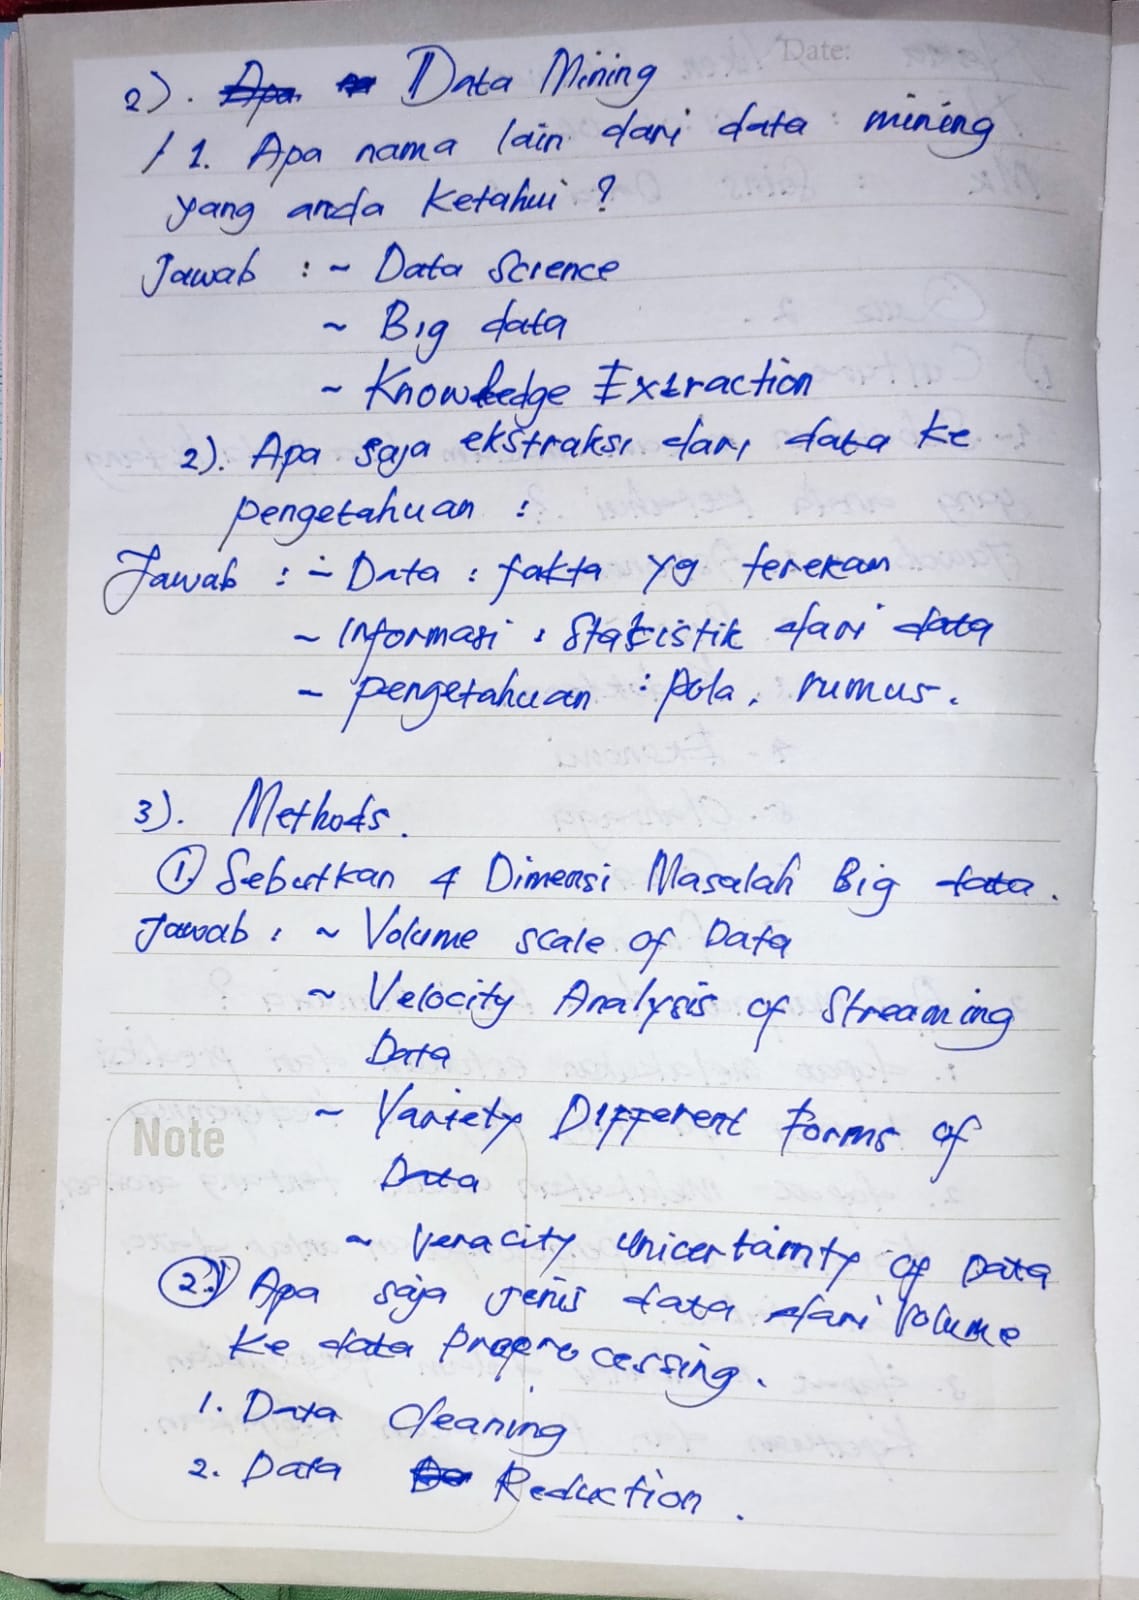 Date:
2). Data Mining
1. Apa nama lain dari data mining
yang anda Ketahui ?
Jawab : ~ Data Science
~ Big data
~ Knowledge Extraction
2). Apa saja ekstraksi dari data ke
pengetahuan :
Jawab : - Data : fakta yg terekam
~ Informasi : Statistik dari data
- pengetahuan : pola, rumus.
3). Methods.
1. Sebutkan 4 Dimensi Masalah Big data.
Jawab : ~ Volume scale of Data
~ Velocity Analysis of Streaming
Data
~ Variety Different Forms of
Note
Data
~ Veracity Unicertainty of Data
2.) Apa saja jenis data dari Volume
Ke data Preprocessing.
1. Data Cleaning
2. Data Reduction.